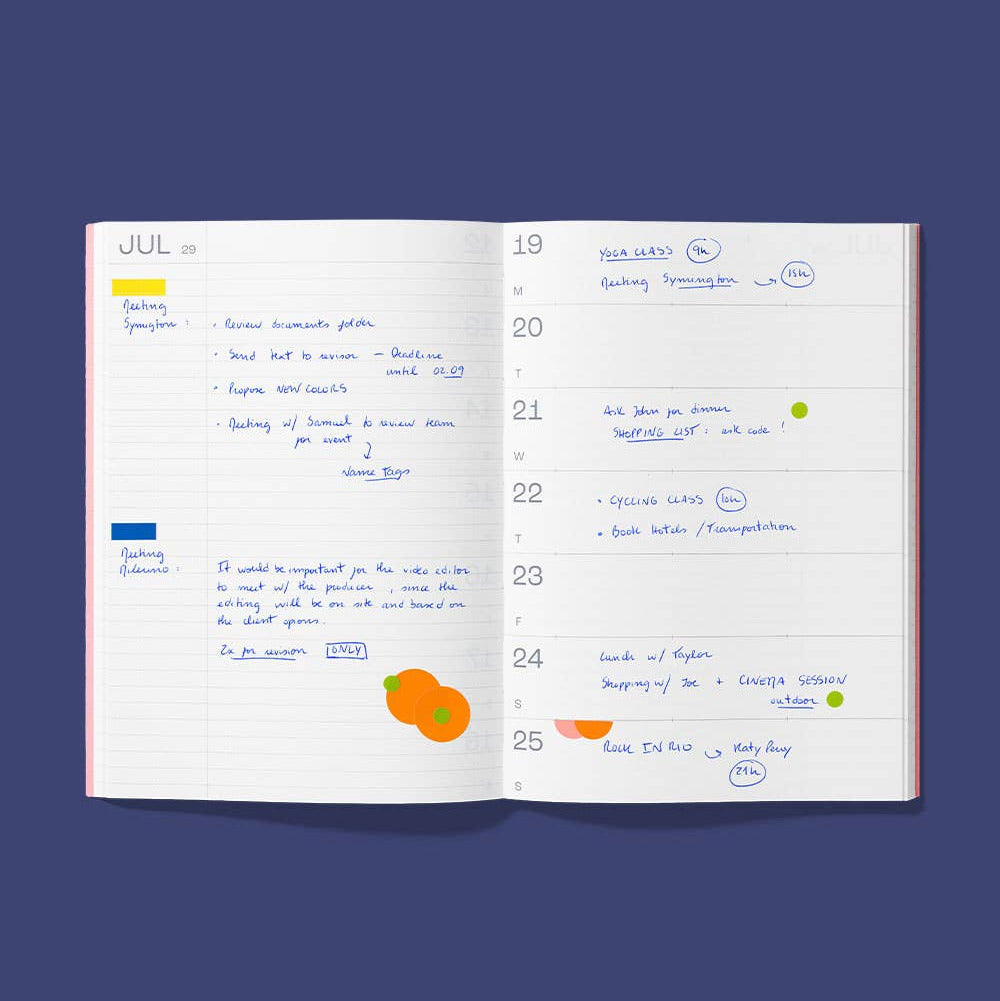 JUL 29
Meeting
Symington :
• Review documents folder
• Send text to revisor – Deadline
until 02.09
• Propose NEW COLORS
• Meeting w/ Samuel to review team
for event
Name tags
Meeting
It would be important for the video editor
to meet w/ the producer , since the
editing will be on site and based on
the client
2x for revision ONLY
19
YOGA CLASS 9h
M
Meeting Symington → 15h
20
T
21
Ask John for dinner
SHOPPING LIST : ask code !
W
22
• CYCLING CLASS 10h
T
• Book Hotels / Transportation
23
F
24
Lunch w/ Taylor
Shopping w/ Joe + CINEMA SESSION
S
outdoor
25
ROCK IN RIO → Katy Perry
21h
S